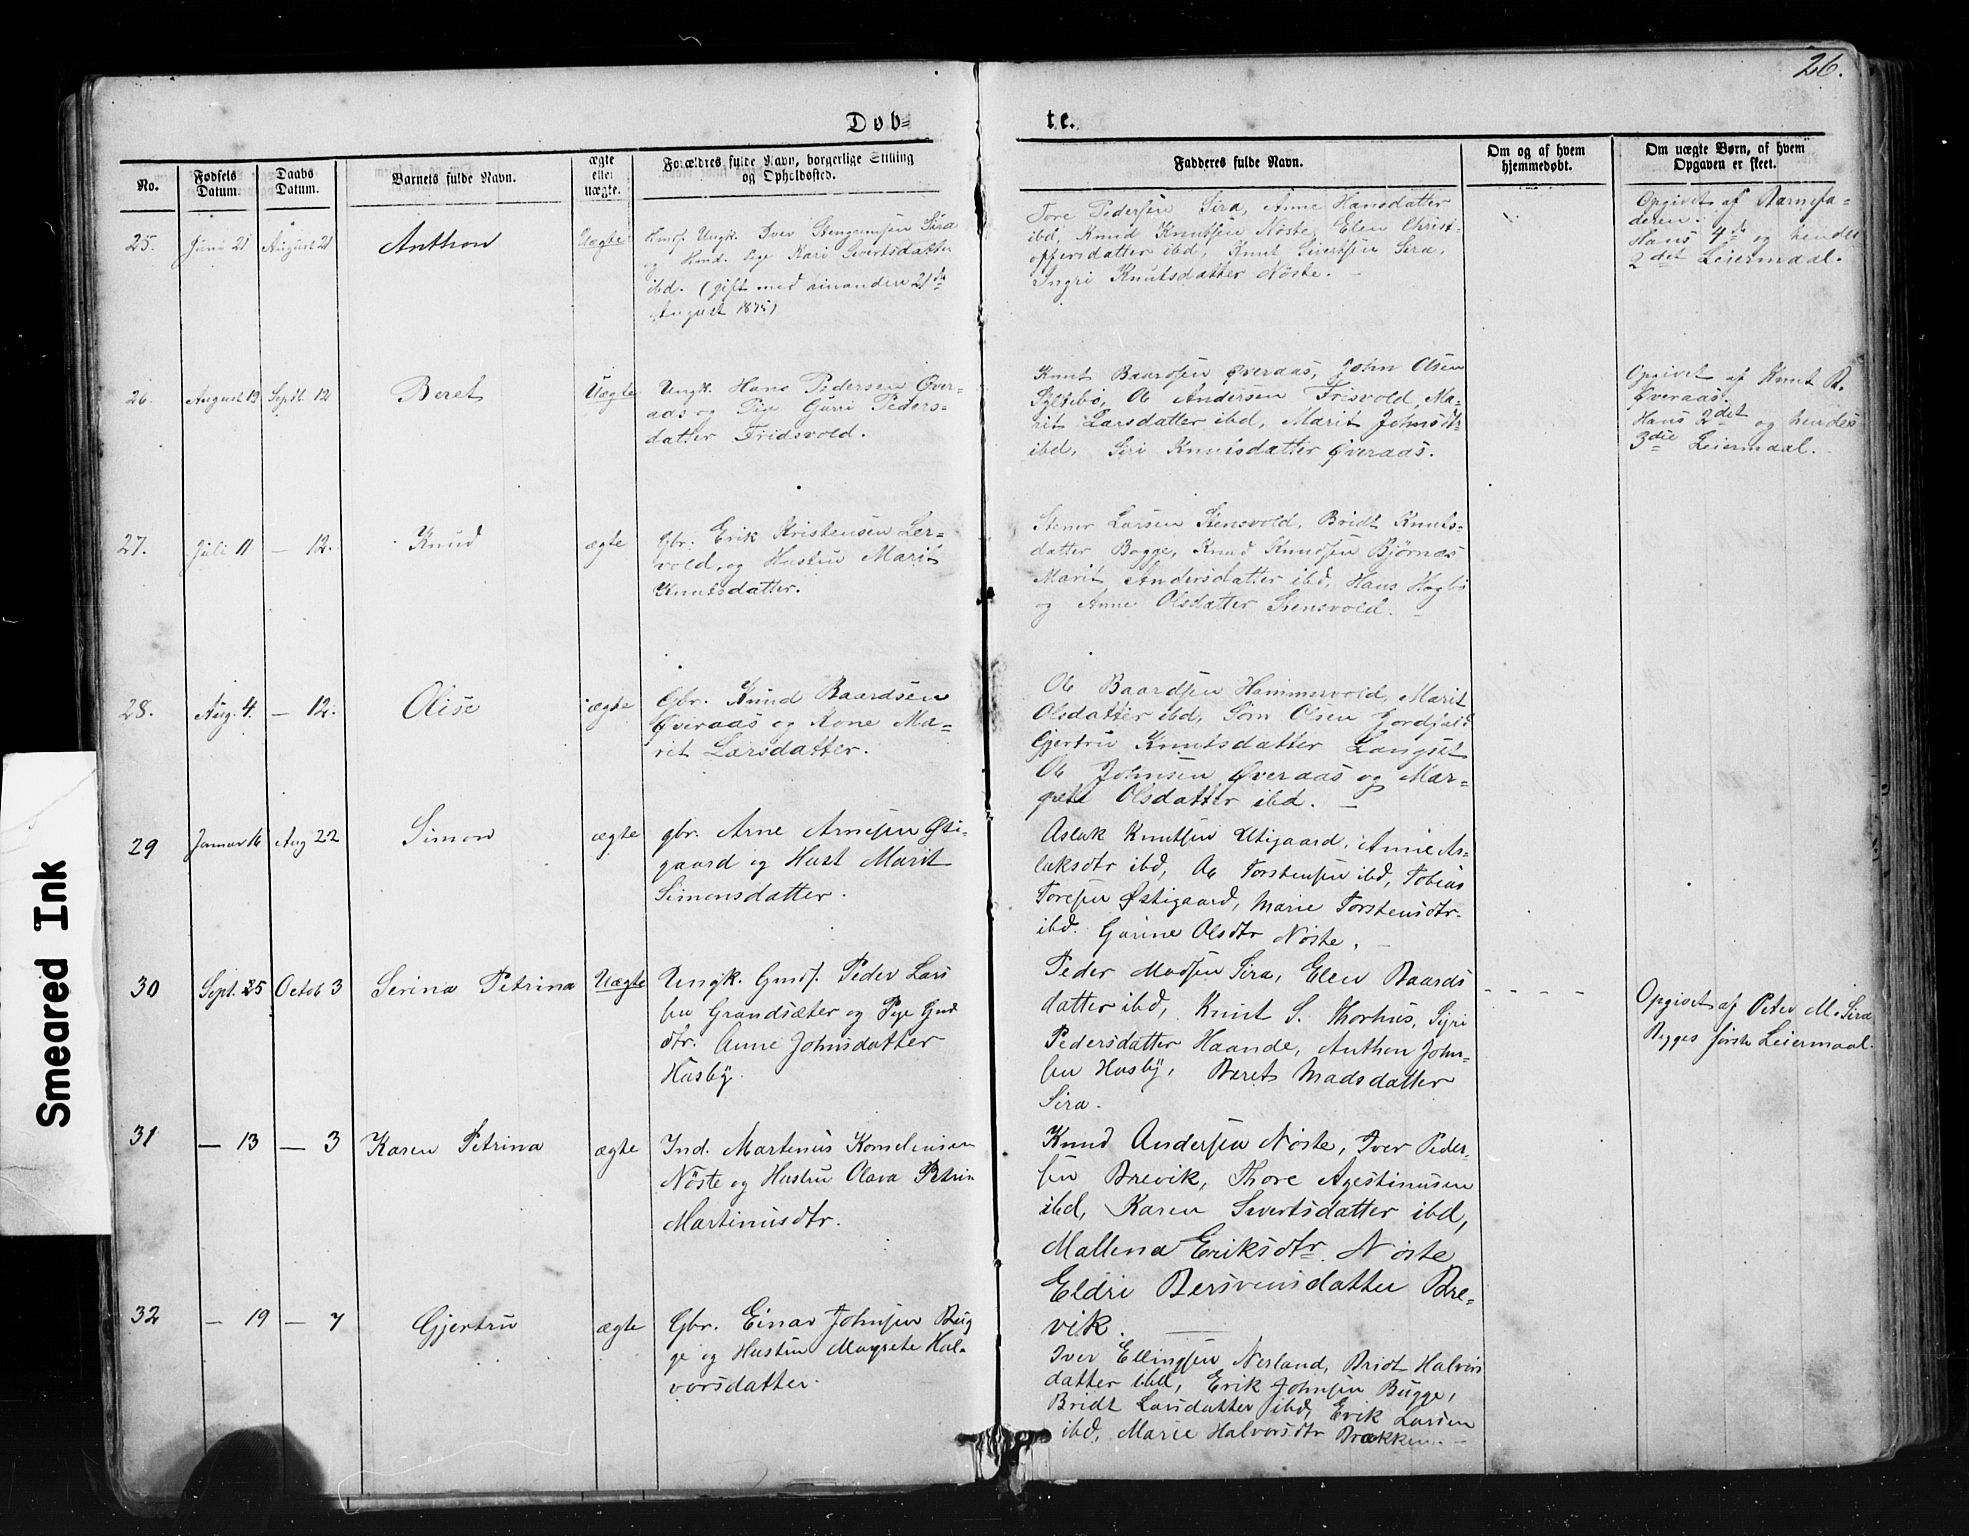 26.
Døb=
te.
No.
Fødsels Datum.
Daabs Datum.
Barnets fulde Navn.
ægte eller uægte.
Forældres fulde Navn, borgerlige Stilling og Opholdssted.
Fadderes fulde Navn.
Om og af hvem hjemmedøbt.
Om uægte Børn, af hvem Opgaven er skeet.
25.
Juni 21
August 21
Anthon
Uægte
Ungk. Iver Sira
og Pige Kari Sivertsdatter
ibd. (gift med hinanden 21de
August 1875)
Tore Pedersen Sira, Anne Hansdatter
ibd, Knud Knutsen Nöste, Elen Christ-
offersdatter ibd, Knut Sivertsen Sira,
Ingri Knutsdatter Nöste. -
Opgivet af Barnefa-
deren.
Hans 4de og hendes
2det Leiermaal.
26.
August 19
Septb. 12
Beret
Uægte
Ungk. Hans Pedersen Över-
aas og Pige Gurri Peders-
datter Fridsvold.
Knut Baardsen Øveraas, John Olsen
Syltebö, Ole Andersen Frisvold, Ma-
rit Larsdatter ibd, Marit Johnsdtr
ibd, Siri Knutsdatter Øveraas.
Opgivet af Knut B.
Øveraas.
Hans 2det og hendes
3die Leiermaal.
27.
Juli 11
— 12.
Knud
ægte
Gbr. Erik Kristensen Ler-
vold, og Hustru Marit
Knutsdatter.
Stener Larsen Stensvold, Bridt Knuts-
datter Bogge, Knud Knudsen Bjørnæs
Marit Andersdatter ibd, Hans Hagbö
og Anne Olsdatter Stensvold. -
28.
Aug. 4.
— 12.
Olise
ægte
Gbr. Knud Baardsen
Øveraas og Kone Ma-
rit Larsdatter.
Ole Baardsen Hammervold, Marit
Olsdatter ibd, Olsen
Gjertru Knutsdatter Langset
Ole Johnsen Øveraas og Mar-
grete Olsdatter ibd. —
29
Januar 16
Aug 22
Simon
ægte
gbr. Arne Arnesen Østi-
gaard og Hust Marit
Simonsdatter.
Aslak Knutsen Utigaard, Anne As-
laksdtr ibd, Ole Torstensen ibd, Tobias
Toresen Østigaard, Marie Torstensdtr.
ibd. Gurine Olsdtr Nöste. -
30
Sept. 25
Octob 3
Serina Petrina
Uægte
Ungk. Gmdf. Peder Lars
sen Grandsæter og Pige Gmd
dtr. Anne Johnsdatter
Husby.
Peder Madsen Sira, Elen Baards
datter ibd, Knut S. Thorhus, Sigri
Pedersdatter Haande, Anthon John-
sen Husby, Beret Madsdatter
Sira.
- - - -
Opgivet af Peter M. Sira
Begges første Leiermaal.
31
— 13
— 3
Karen Petrina
ægte
Ind. Martinus Korneliusen
Nöste og Hustru Olava Petrin
Martinusdtr.
Knud Andersen Nöste, Iver Peder-
sen Brevik, Thore Agestinusen
ibd, Karen Sivertsdatter ibd,
Mallena Eriksdtr. Nöste
Eldri Bersvensdatter Bre-
vik.
32
— 19
— 7
Gjertru
ægte
Gbr. Einar Johnsen Bug
ge og Hustru Magrete Hal-
vorsdatter.
Iver Ellingsen Nerland, Bridt Halvors
datter ibd, Erik Johnsen Bugge,
Bridt Larsdatter ibd, Erik Larsen
ibd, Marie Halvorsdtr Brækken. -
Smeared Ink